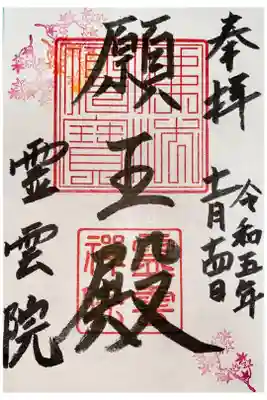 奉拝
令和五年
十一月十四日
願王殿
佛法僧寶
霊雲院